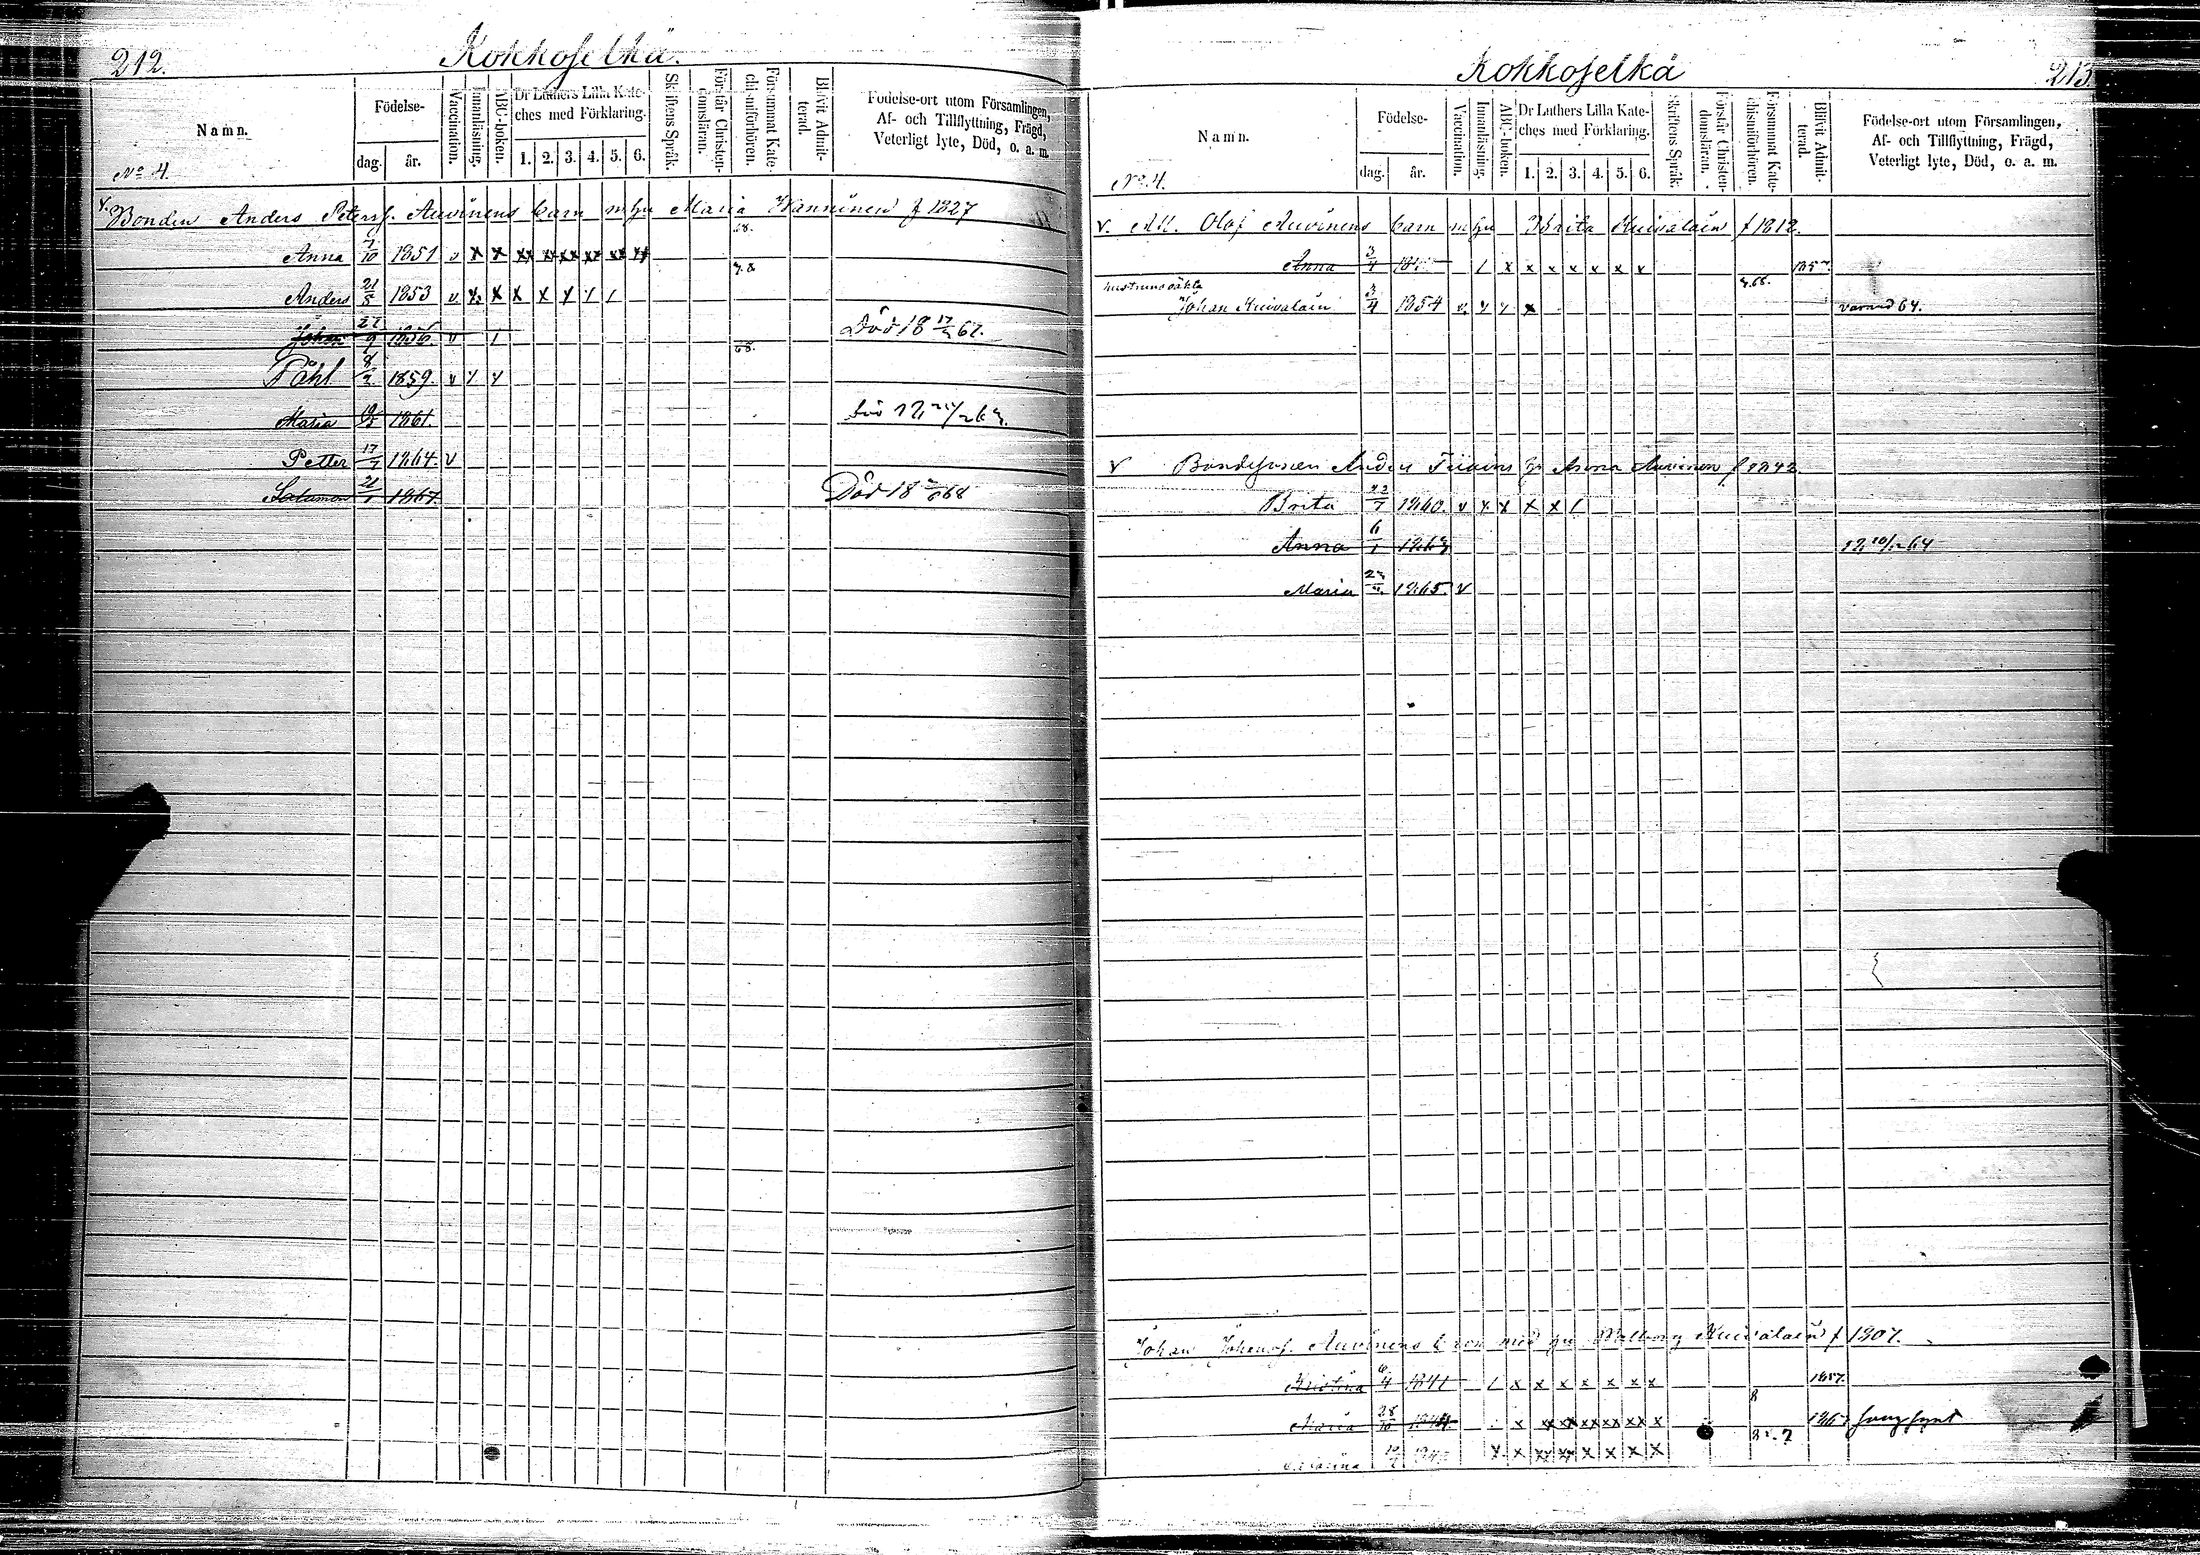 212. Kokkoselkä.
Namn. Födelse- dag. år. Vaccination. Innanläsning. ABC-boken. Dr Luthers Lilla Kateches med Förklaring. 1. 2. 3. 4. 5. 6. Skriftens Språk. Förstår Christendomsläran. Försummat Katechismiförhören. Blifvit Admitterad. Födelse-ort utom Församlingen, Af- och Tillflyttning, Frägd, Veterligt lyte, Död, o. a. m.
No 4.
v. Bonden Anders Peterss. Auvinens barn m hu Maria Wänninen f 1827
Anna 7/10 1851 v x x xx xx xx xx xx xx 68.
Anders 21/5 1853 v x x x x x / /
Johan 27/9 1856 v / Död 18 17/ 62.
Påhl 8/3 1859. v x x 68.
Maria 1861.
Petter 17/7 1864. v
Salamon 21/1 1867. Död 18 68
Kokkoselkä 213.
Namn. Födelse- dag. år. Vaccination. Innanläsning. ABC-boken. Dr Luthers Lilla Kateches med Förklaring. 1. 2. 3. 4. 5. 6. Skriftens Språk. Förstår Christendomsläran. Försummat Katechismiförhören. Blifvit Admitterad. Födelse-ort utom Församlingen, Af- och Tillflyttning, Frägd, Veterligt lyte, Död, o. a. m.
No. 4.
v. Olof Auvinens barn m hu Brita Kuivalain f 1812.
Anna 3/4 / x x x x x x x 1857.
hustruns oäkta
Johan Kuivalain 3/4 1854 v. x x x 64.
v Bondesonen Anders hu Anna Auvinen f 1842
Brita 22/7 1860. v x x x x /
Anna 6/1 1863 18 10/12 64
Maria 1865. v
Johan Johanss. Auvinens barn med hu Walborg Kuivalain f 1807.
Kristina 6/4 1841 / x x x x x x x 1857.
Maria 28/10 1844 x xx xx xx xx xx x
x x xx xx x x x x